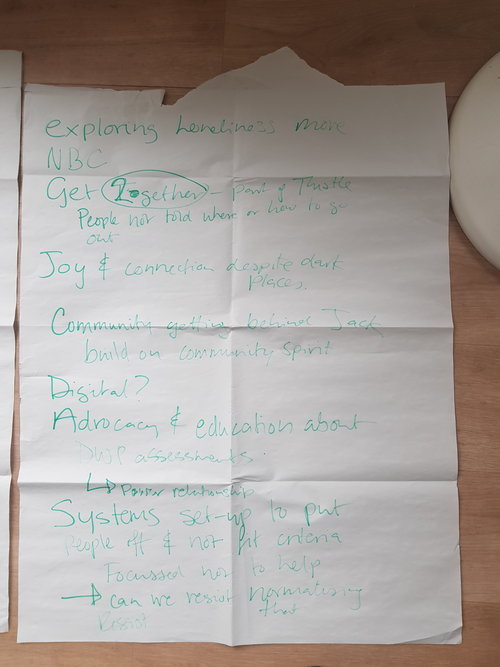 exploring Loneliness more
NBC
Get 2gether - part of Thistle
People not told where or how to go
out
Joy & connection despite dark
Places.
Community getting behind Jack
build on community spirit
Digital?
Advocacy & education about
DWP assessments.
↳ Power relationship
Systems set-up to put
People off & not fit criteria
Focussed not to help
→ can we resist normalising
that
Resist